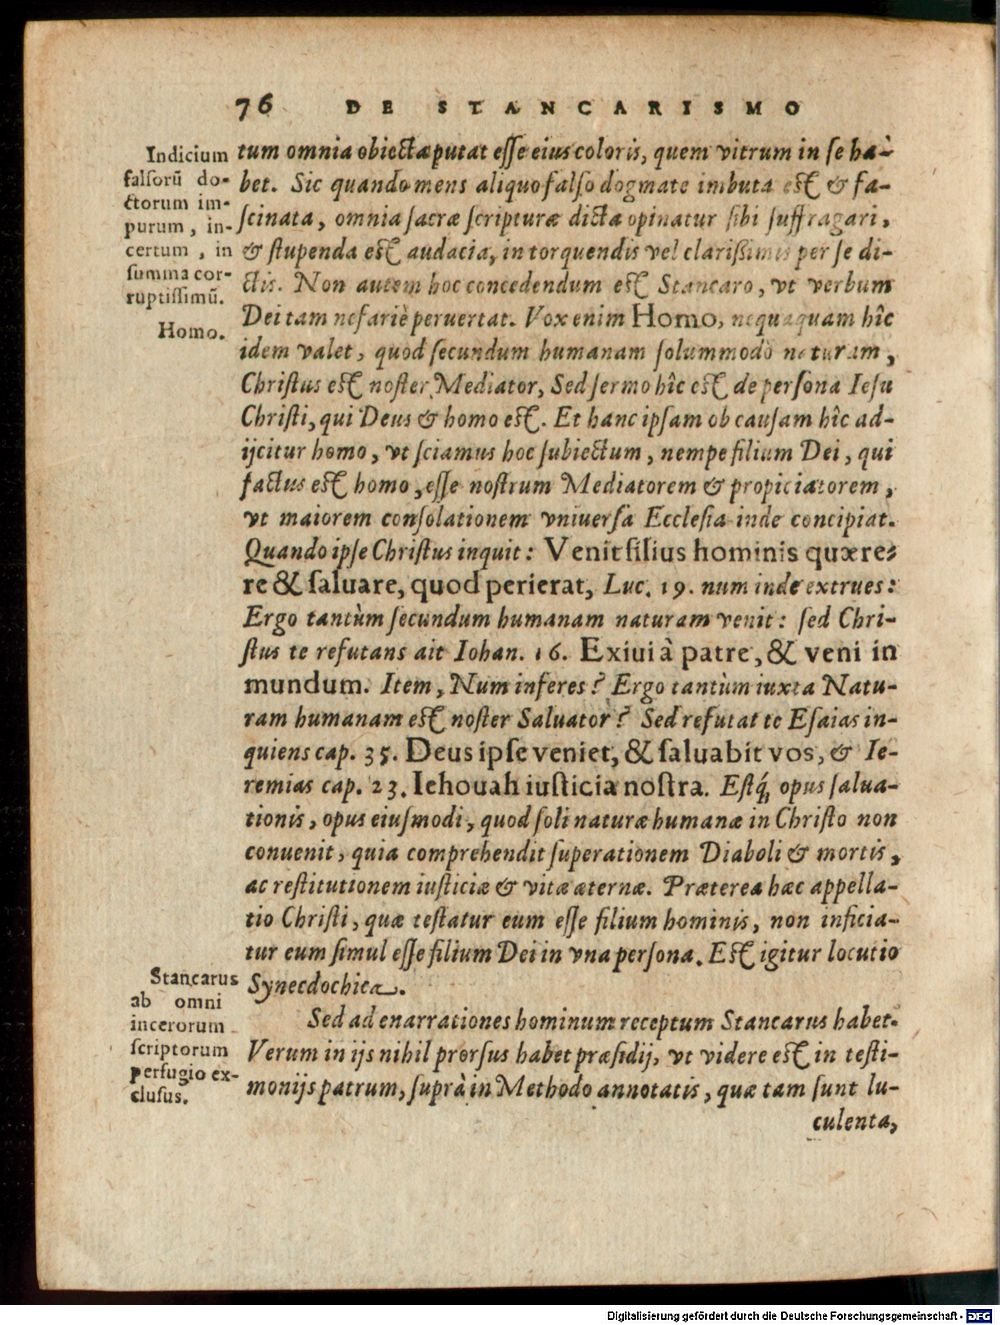 76 DE STANCARISMO
Indicium
falsorũ do-
ctorum im-
purum, in-
certum, in
summa cor-
ruptissimũ.
Homo.
tum omnia obiecta putat esse eius coloris, quem vitrum in se ha-
bet. Sic quando mens aliquo falso dogmate imbuta est & fa-
scinata, omnia sacræ scripturæ dicta opinatur sibi suffragari,
& stupenda est audacia, in torquendis vel clarißimis per se di-
ctis. Non autem hoc concedendum est Stancaro, vt verbum
Dei tam nefariè peruertat. Vox enim Homo, nequaquam hîc
idem valet, quod secundum humanam solummodo naturam,
Christus est noster Mediator, Sed sermo hîc est de persona Iesu
Christi, qui Deus & homo est. Et hanc ipsam ob causam hîc ad-
ijcitur homo, vt sciamus hoc subiectum, nempe filium Dei, qui
factus est homo, esse nostrum Mediatorem & propiciatorem,
vt maiorem consolationem vniuersa Ecclesia inde concipiat.
Quando ipse Christus inquit: Venit filius hominis quære-
re & saluare, quod perierat, Luc. 19. num inde extrues:
Ergo tantùm secundum humanam naturam venit: sed Chri-
stus te refutans ait Iohan. 16. Exiui à patre, & veni in
mundum. Item, Num inferes? Ergo tantùm iuxta Natu-
ram humanam est noster Saluator? Sed refutat te Esaias in-
quiens cap. 35. Deus ipse veniet, & saluabit vos, & Ie-
remias cap. 23. Iehouah iusticia nostra. Estq́; opus salua-
tionis, opus eiusmodi, quod soli naturæ humanæ in Christo non
conuenit, quia comprehendit superationem Diaboli & mortis,
ac restitutionem iusticiæ & vitæ æternæ. Præterea hæc appella-
tio Christi, quæ testatur eum esse filium hominis, non inficia-
tur eum simul esse filium Dei in vna persona. Est igitur locutio
Synecdochica.
Stancarus
ab omni
incerorum
scriptorum
perfugio ex-
clusus.
Sed ad enarrationes hominum receptum Stancarus habet.
Verum in ijs nihil prorsus habet præsidij, vt videre est in testi-
monijs patrum, suprà in Methodo annotatis, quæ tam sunt lu-
culenta,
Digitalisierung gefördert durch die Deutsche Forschungsgemeinschaft - DFG